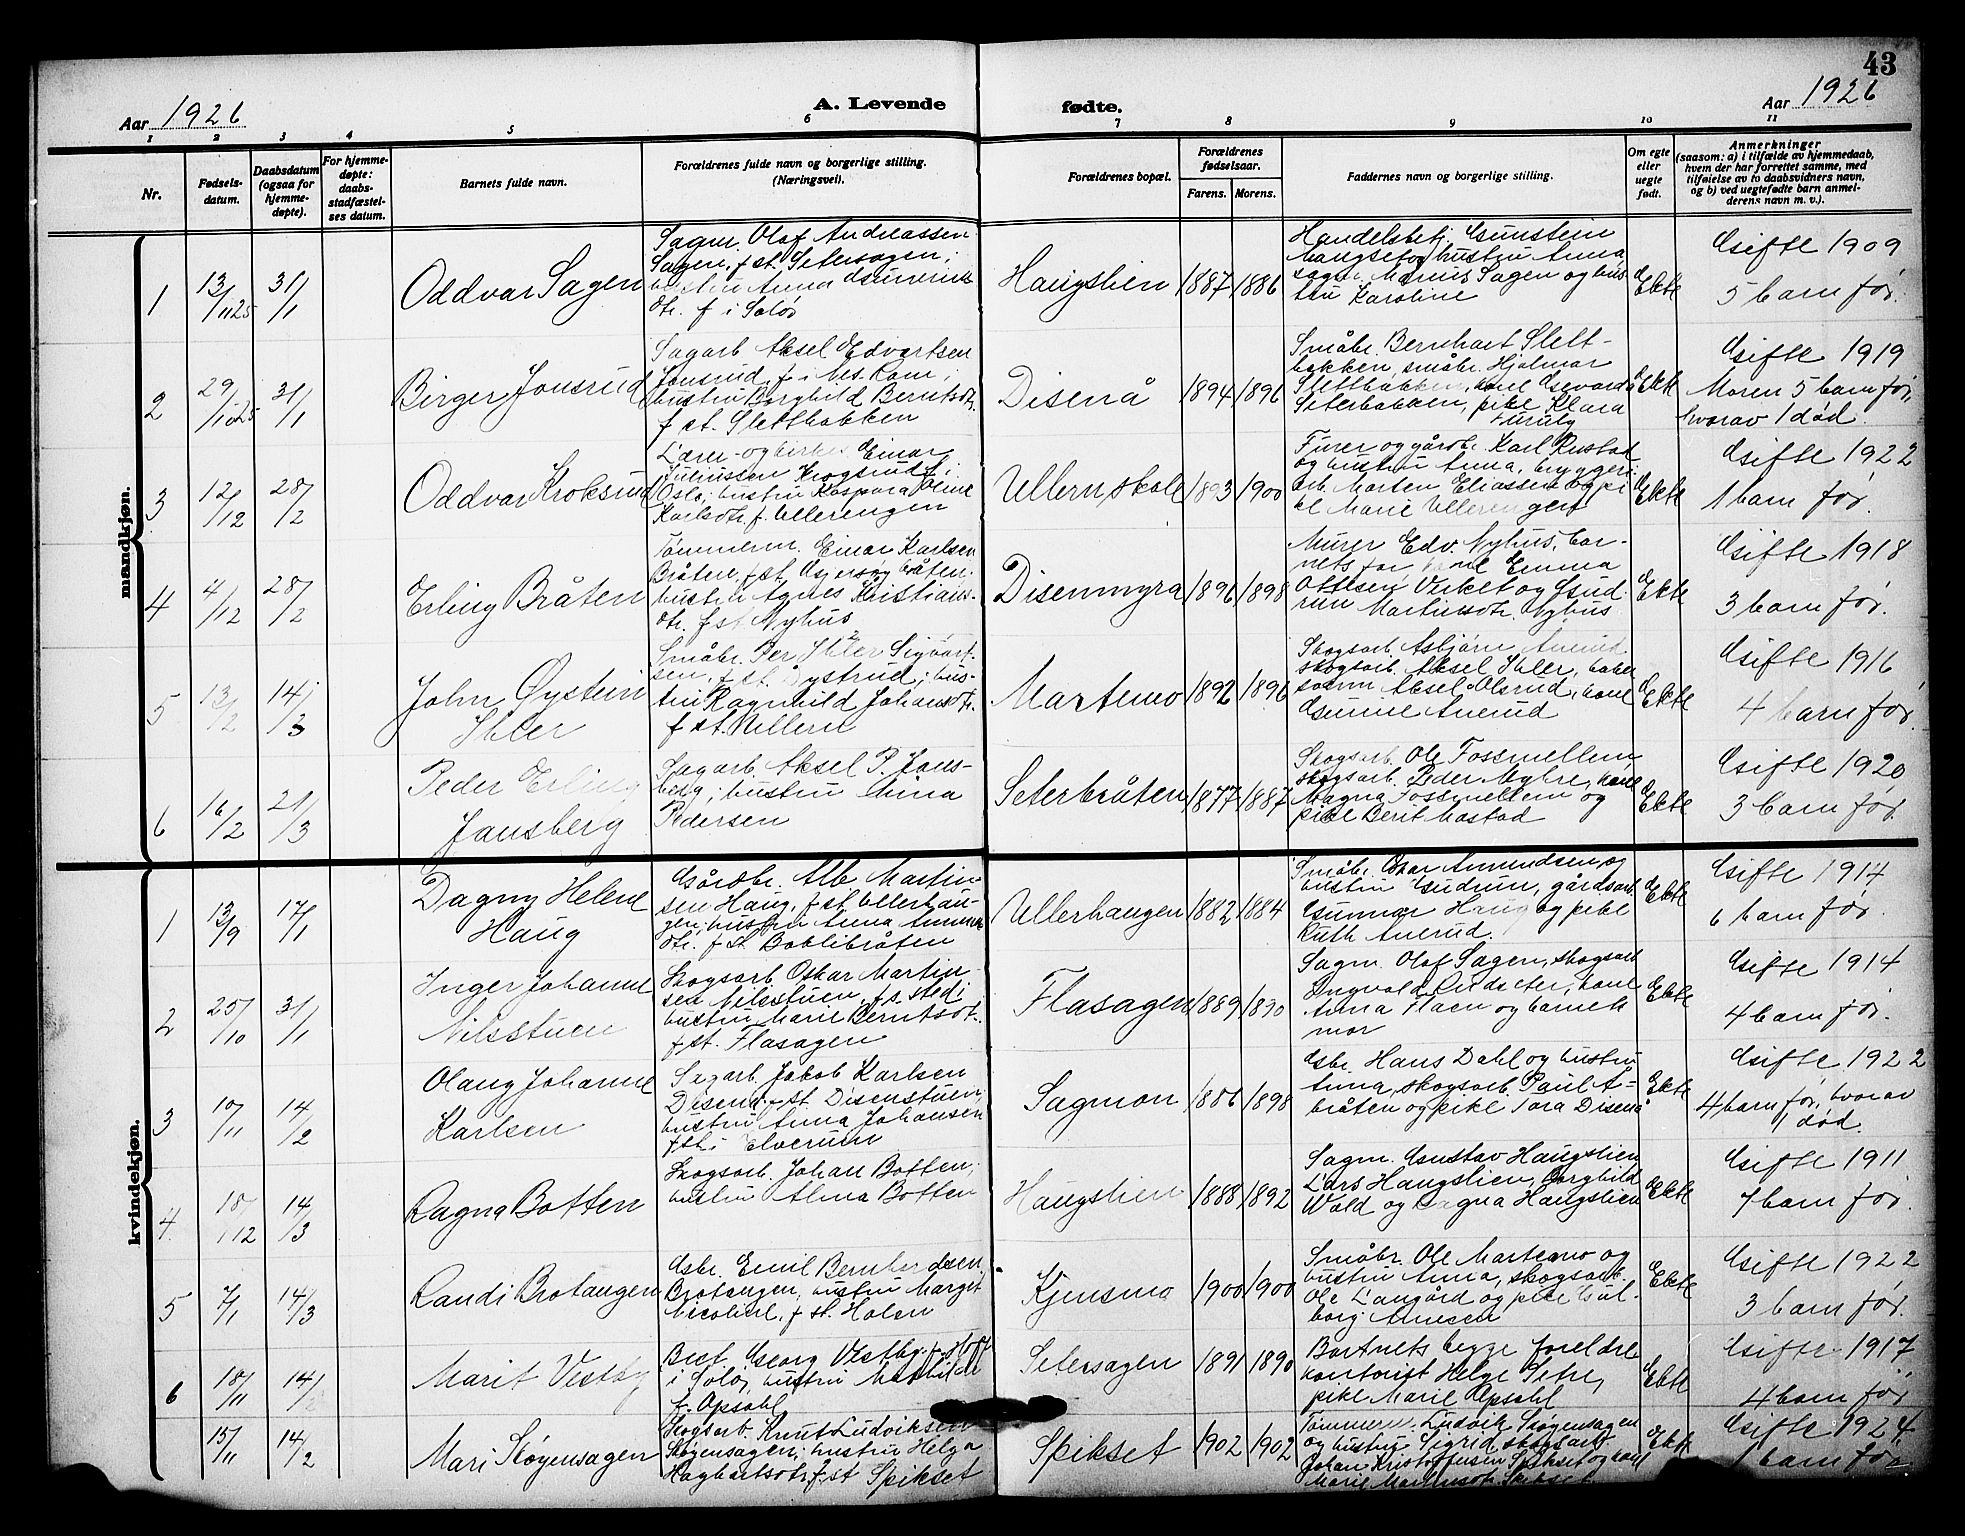 43
Aar 1926
A. Levende fødte.
Aar 1926
1 2 3 4 5 6 7 8 9 10 11
Nr.
Fødsels-
datum.
Daabsdatum
(ogsaa for
hjemme-
døpte).
For hjemme-
døpte:
daabs-
stadfæstel-
ses datum.
Barnets fulde navn.
Forældrenes fulde navn og borgerlige stilling.
(Næringsvei).
Forældrenes bopæl.
Forældrenes
fødselsaar.
Farens. Morens.
Faddernes navn og borgerlige stilling.
Om egte
eller
uegte
født.
Anmerkninger
(saasom: a) i tilfælde av hjemmedaab,
hvem der har forrettet samme, med
tilføielse av to daabsvidners navn,
og b) ved uegtefødte barn anmel-
derens navn m. v.).
mandkjøn.
1
13/11 25
31/1
Oddvar Sagen
Sagm. Olaf Andreassen
Sagen, f. st. Setersagen;
hustru Anna
dtr. f. i Solør
Haugstien
1887
1886
Handelsbetj. Gunstein
og hustru Anna,
sagm. Marius Sagen og hus-
tru Karoline
Ekte
Gifte 1909
5 barn før.
2
29/10 25
31/1
Birger Jonsrud
Sagarb. Aksel Edvartsen
Jonsrud, f. i Nes, Rom.;
hustru Borghild Berntsdtr.
f. st. Slettbakken
Disenå
1894
1896
Småbr. Bernhart Slett-
bakken, småbr. Hjalmar
Slettbakken, kone Gevarda
Seterbakken, pike Klara
Furuly
Ekte
Gifte 1919
Moren 5 barn før,
hvorav 1 død.
3
12/12
28/2
Oddvar Kroksrud
Lærer- og Einar
Juliussen Krogsrud f. i
Oslo; hustru Kaspara Oline
Karlsdtr. f. Ullerengen
Ullern skole
1893
1900
Furer og gårdbr. Karl Rustad
og hustru Anna, bryggeri-
arb. Morten Eliassen og pi-
ke Marie Ullerengen
Ekte
Gifte 1922
1 barn før.
4
4/12
28/2
Erling Bråten
Tømmerm. Einar Karlsen
Bråten, f. st. bråten.
hustru Agnes Kristians-
dtr. f. st. Nyhus
Disenmyra
1896
1898
Murer Edv. Nyhus, bar-
nets far, kone Emma
Ottesen Verket og Gud-
run Martinsdtr. Nyhus
Ekte
Gifte 1918
3 barn før.
5
13/2
14/3
John Øystein
Ihler
Småbr. Per Ihler Sigvart-
sen, f. st. Dystrud; hus-
tru Ragnhild Johansdtr.
f. st. Ullern
Martemo
1892
1896
Skogsarb. Asbjørn Anerud
skogsarb. Aksel Ihler,
Aksel Olsrud, kone
Gunne Anerud
Ekte
Gifte 1916
4 barn før.
6
16/2
21/3
Peder Erling
Jansberg
Sagarb. Aksel P. Jans-
berg; hustru Anna
Pedersen
Seterbråten
1877
1887
Skogsarb. Ole Fossmellem
skogsarb. Peder Myhre, kone
Magna Fossmellem og
pike Berit Mostad
Ekte
Gifte 1920
3 barn før.
kvindekjøn.
1
13/9
17/1
Dagny Helene
Haug
Gårdbr. Alb. Martin-
sen Haug, f. st. Ullerhau-
gen; hustru Anna
dtr. f. st. Boblibråten
Ullerhaugen
1882
1884
Småbr. Oskar Amundsen og
hustru Gudrun, gårdsarb.
Gunnar Haug og pike
Ruth Anerud.
Ekte
Gifte 1914
6 barn før.
2
25/10
31/1
Inger Johanne
Nilsstuen
Skogsarb. Oskar Martin-
sen Nilsstuen, f. s. sted;
hustru Marie Berntsdtr.
f. st. Flasagen
Flasagen
1889
1890
Sagm. Olaf Sagen, skogsarb.
Ingvald Rudseter, kone
Anna Flaen og barnets
mor
Ekte
Gifte 1914
4 barn før.
3
10/11
14/2
Olaug Johanne
Karlsen
Sagarb. Jakob Karlsen
Disen, f. st. Disenstuen;
hustru Anna Johansen
f. st. i Elverum
Sagmon
1886
1898
Gbr. Hans Dahl og hustru
Anna, skogsarb. Paul Å-
bråten og pike Tora Disenå
Ekte
Gifte 1922
4 barn før, hvorav
1 død.
4
18/12
14/3
Ragna Botten
Skogsarb. Johan Botten;
hustru Alma Botten
Haugstien
1888
1892
Sagm. Gustav Haugstien
Lars Haugstien, Borghild
Wold og Ragna Haugstien
Ekte
Gifte 1911
7 barn før.
5
7/1
14/3
Randi Brotangen
Gbr. Emil Berntsen
Brotangen, hustru Margit
Nicoline, f. st. Holen
Kjensmo
1900
1900
Småbr. Ole Martemo og
hustru Anna, skogsarb.
Ole Langård og pike Wal-
borg Arnesen
Ekte
Gifte 1922
3 barn før.
6
18/11
14/2
Marit Vestby
Georg Vestby, f.
i Solør, hustru Mathilde
f. Opsahl
Setersagen
1891
1890
Barnets begge foreldre
kontorist Helge Setre,
pike Marie Opsahl
Ekte
Gifte 1917
4 barn før
15/11
14/2
Mari Skøyensagen
Skogsarb. Knut Ludviksen
Skøyensagen; hustru Helga
Hagbartsdtr. f. st. Spikset
Spikset
1902
1902
Tømmerm. Ludvik Skøyensagen
og hustru Sigrid, skogsarb.
Johan Kristoffersen Spikset og kone
Marie Spikset
Ekte
Gifte 1924
1 barn før